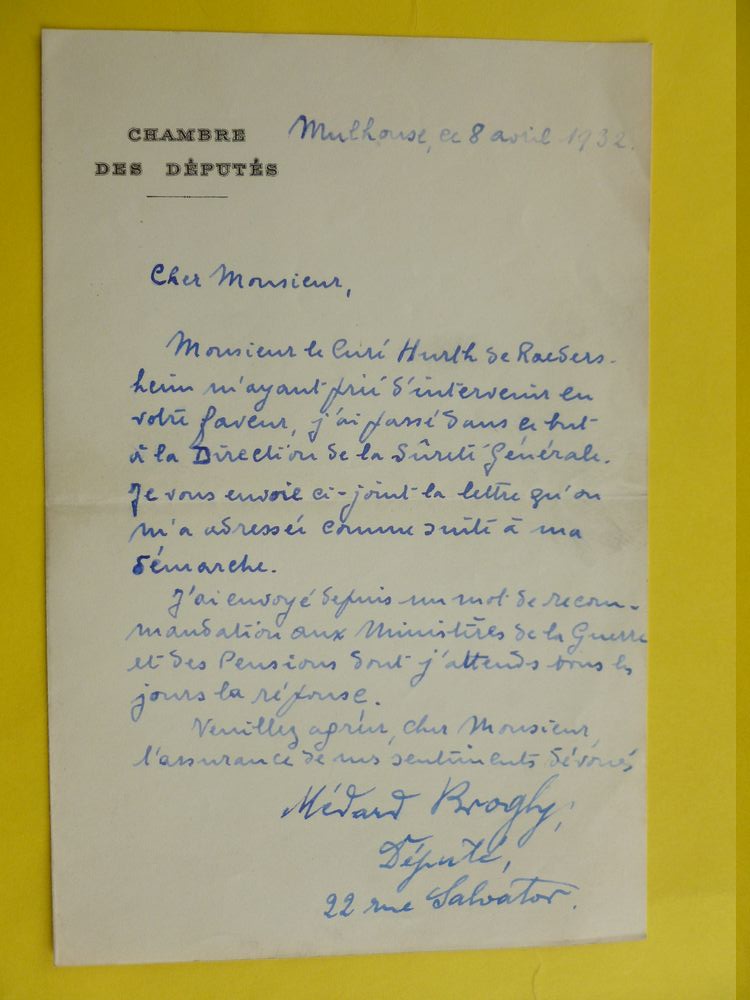 CHAMBRE
DES DÉPUTÉS
Mulhouse, ce 8 avril 1932.
Cher Monsieur,
Monsieur le Curé Hurth de Raeders-
heim m'ayant prié d'intervenir en
votre faveur, j'ai passé dans ce but
à la Direction de la Sûreté Générale.
Je vous envoie ci-joint la lettre qu'on
m'a adressée comme suite à ma
démarche.
J'ai envoyé depuis un mot de recom-
mandation aux Ministères de la Guerre
et des Pensions dont j'attends tous les
jours la réponse.
Veuillez agréer, cher Monsieur,
l'assurance de mes sentiments dévoués
Médard Brogly,
Député,
22 rue Salvator.